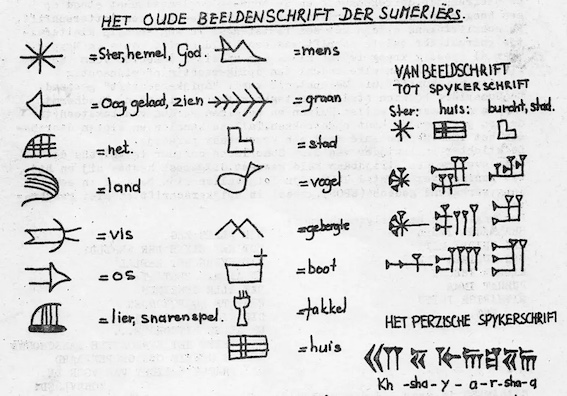 HET OUDE BEELDENSCHRIFT DER SUMERIËRS.
=Ster, hemel, God.
=Oog, gelaad, zien
=net.
=land
=vis
=os
=lier, snarenspel.
=mens
=graan
=stad
=vogel
=gebergte
=boot
=takkel
=huis
VAN BEELDSCHRIFT
TOT SPYKERSCHRIFT
Ster: huis: burcht, stad.
HET PERZISCHE SPYKERSCHRIFT
Kh -sha-y-a-r-sha-a